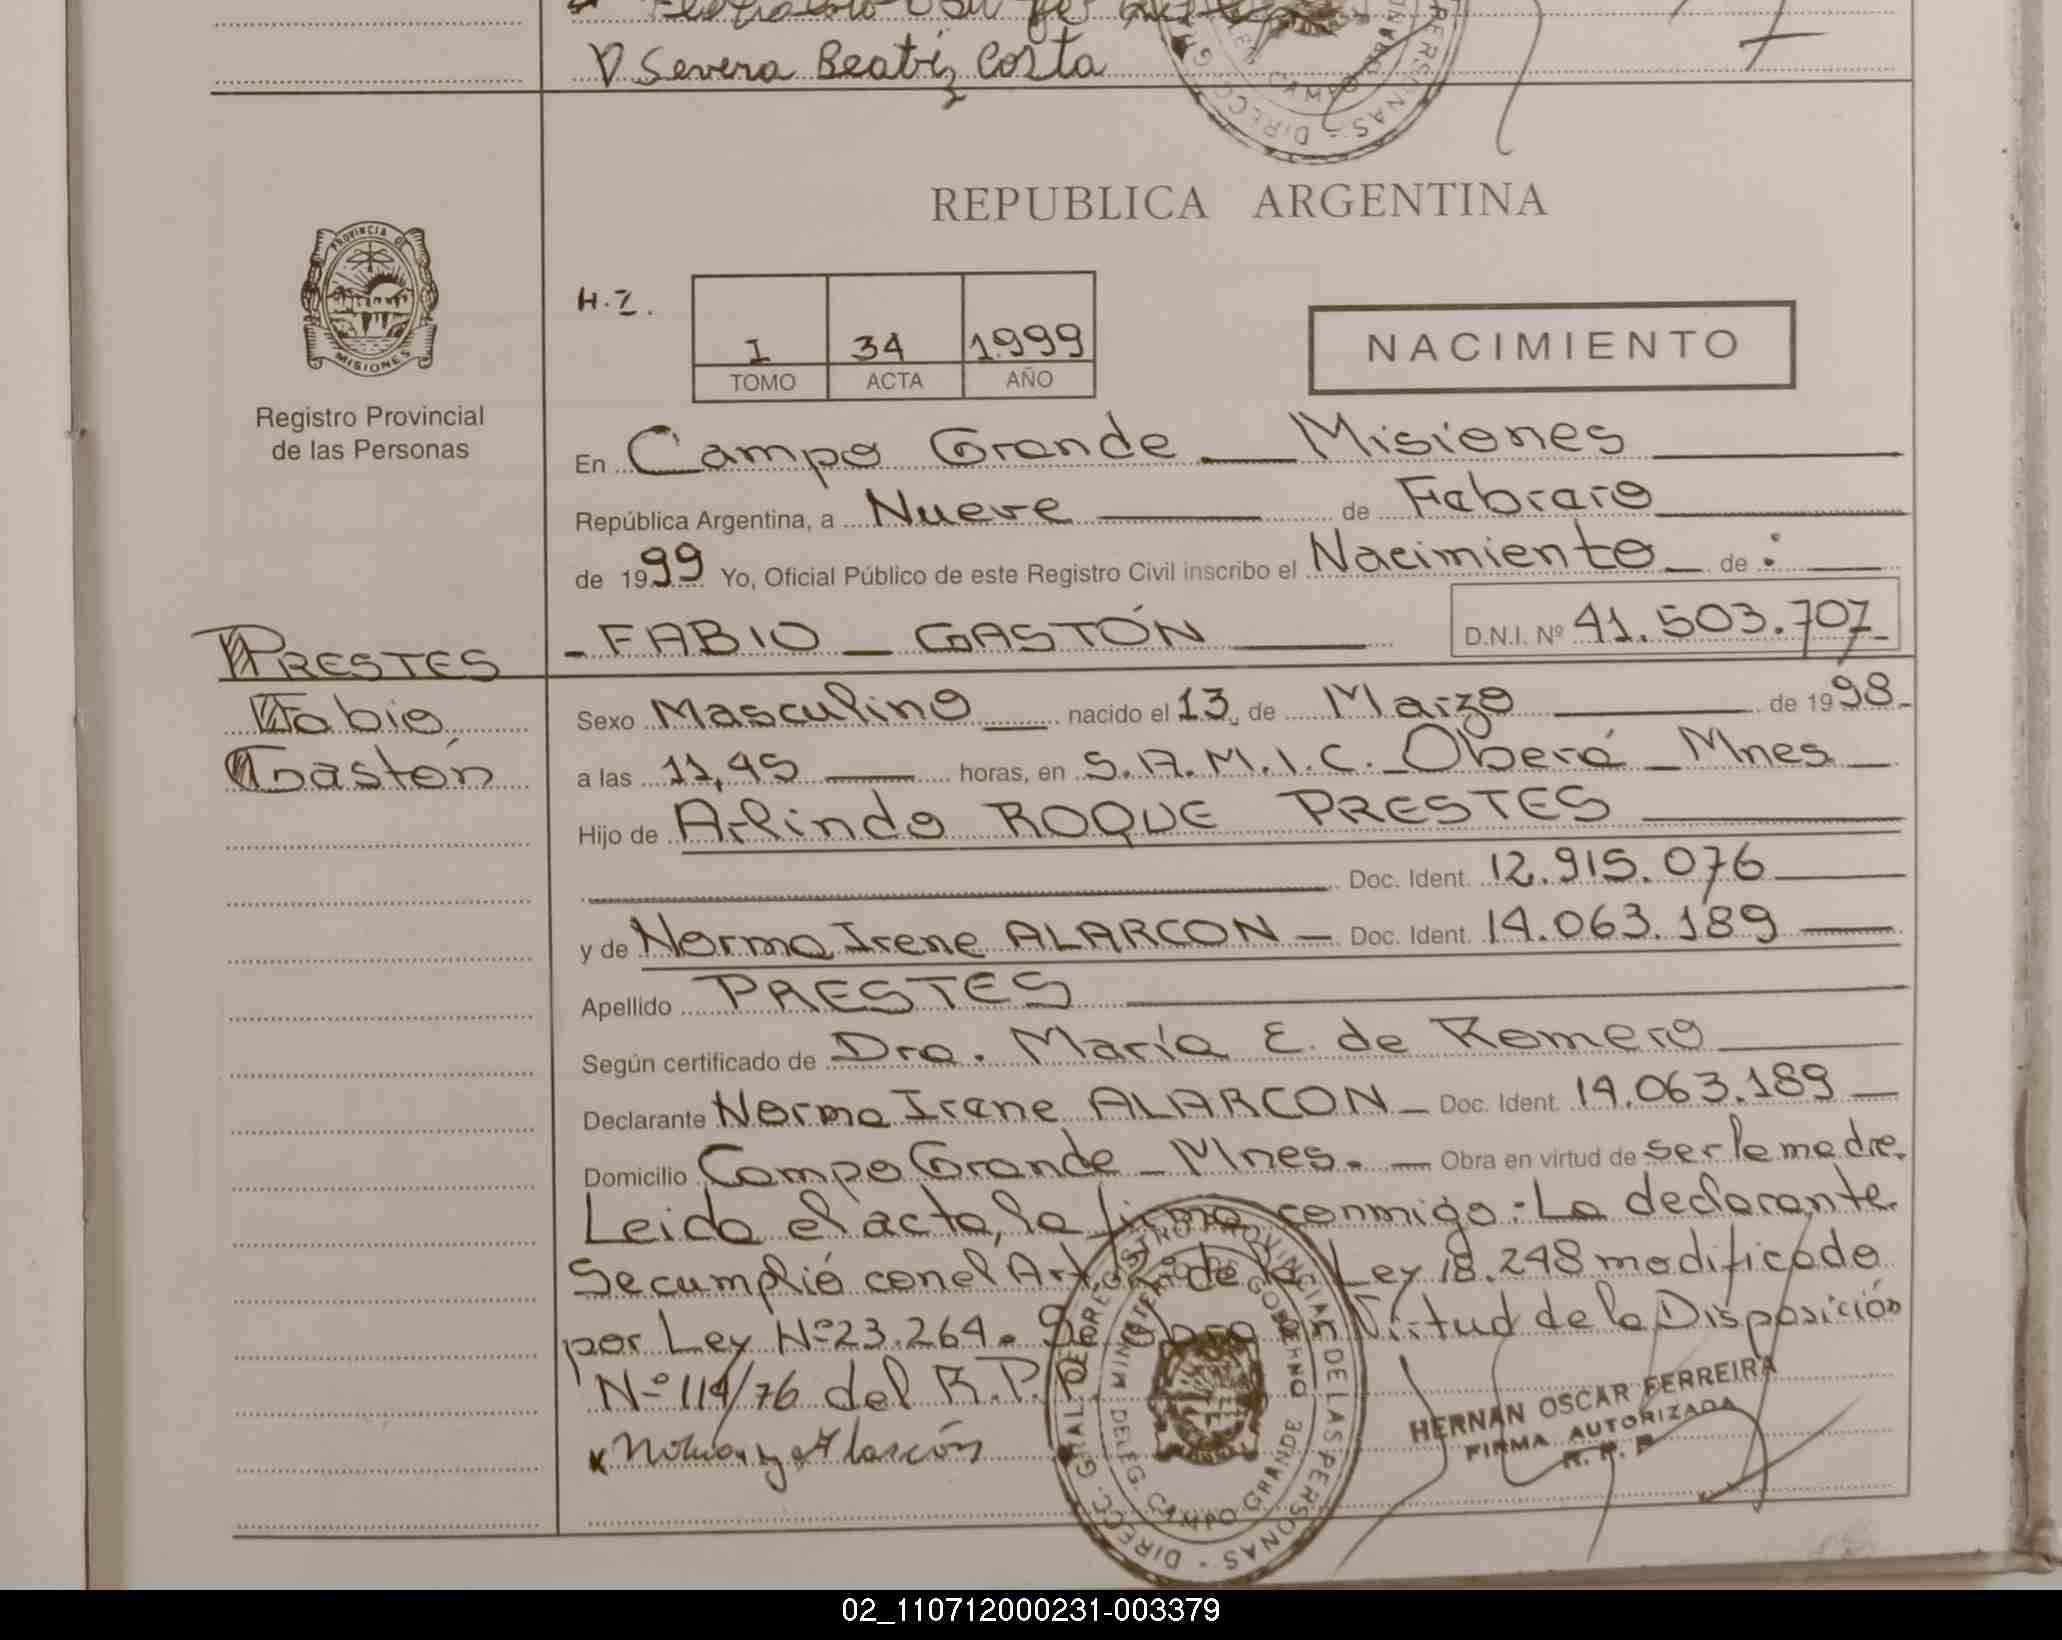 Severa Beatriz Costa
REPUBLICA ARGENTINA
PROVINCIA DE MISIONES
Registro Provincial
de las Personas
H.Z.
I 34 1999
TOMO ACTA AÑO
NACIMIENTO
En Campo Grande Misiones
República Argentina, a Nueve de Febrero
de 1999 Yo, Oficial Público de este Registro Civil inscribo el Nacimiento de :
FABIO GASTÓN D.N.I. Nº 41.503.707
PRESTES
Fabio
Gastón
Sexo Masculino nacido el 13 de Marzo de 1998
a las 11,45 horas, en S.A.M.I.C. Oberá Mnes
Hijo de Arlindo ROQUE PRESTES
Doc. Ident. 12.915.076
y de Norma Irene ALARCON Doc. Ident. 14.063.189
Apellido PRESTES
Según certificado de Dra. María E. de Romero
Declarante Norma Irene ALARCON Doc. Ident. 14.063.189
Domicilio Campo Grande Mnes. Obra en virtud de ser la madre.
Leida el acta, la firma conmigo: La declarante
Se cumplió con el Art. de la Ley 18.248 modificado
por Ley Nº 23.264. Se Obra en Virtud de la Disposición
Nº 114/76 del R.P.P.
x Norma y Alarcón
DIRECC. GRAL. DE REGISTRO PROVINCIAL DE LAS PERSONAS
MINISTERIO DE GOBIERNO
DELEG. CAMPO GRANDE
HERNAN OSCAR FERREIRA
FIRMA AUTORIZADA
R. P. P
02_110712000231-003379